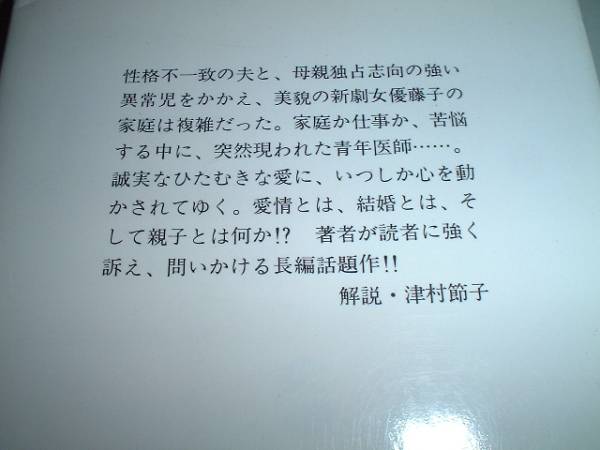 性格不一致の夫と、母親独占志向の強い
異常児をかかえ、美貌の新劇女優藤子の
家庭は複雑だった。家庭か仕事か、苦悩
する中に、突然現われた青年医師……。
誠実なひたむきな愛に、いつしか心を動
かされてゆく。愛情とは、結婚とは、そ
して親子とは何か!?　著者が読者に強く
訴え、問いかける長編話題作!!
解説・津村節子